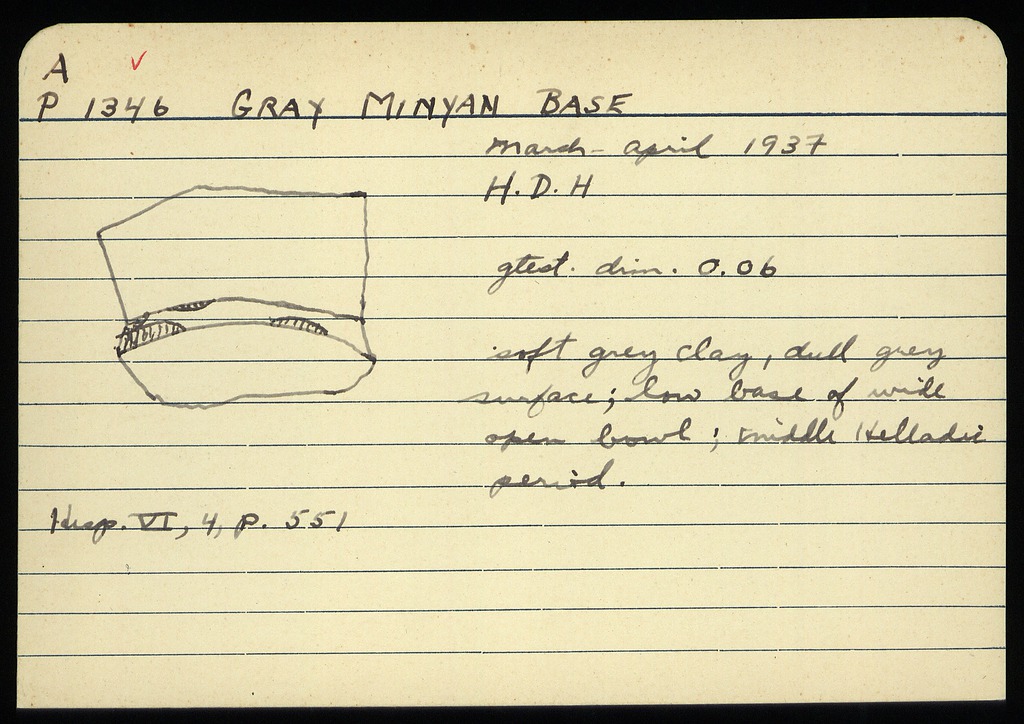 A ✓
P 1346 GRAY MINYAN BASE
March - April 1937
H.D.H
gtest. dim. 0.06
soft grey clay, dull grey
surface; low base of wide
open bowl; middle Helladic
period.
Hesp. VI, 4, p. 551